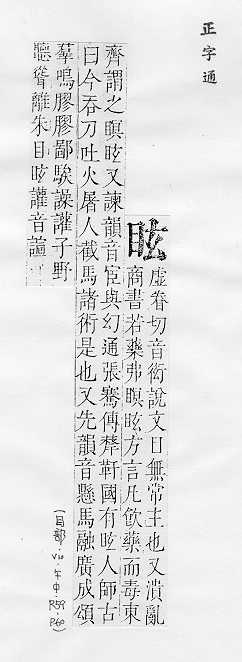 正字通
眩 虛眷切音衒說文目無常主也又潰亂
商書若藥弗瞑眩方言凡飲藥而毒東
齊謂之瞑眩又諫韻音宦與幻通張騫傳犛靬國有眩人師古
曰今吞刀吐火屠人截馬諸術是也又先韻音懸馬融廣成頌
羣鳴膠膠鄙騃譟讙子野
聽聳離朱目眩讙音諠
(目部.V10.午中.P59 P60)